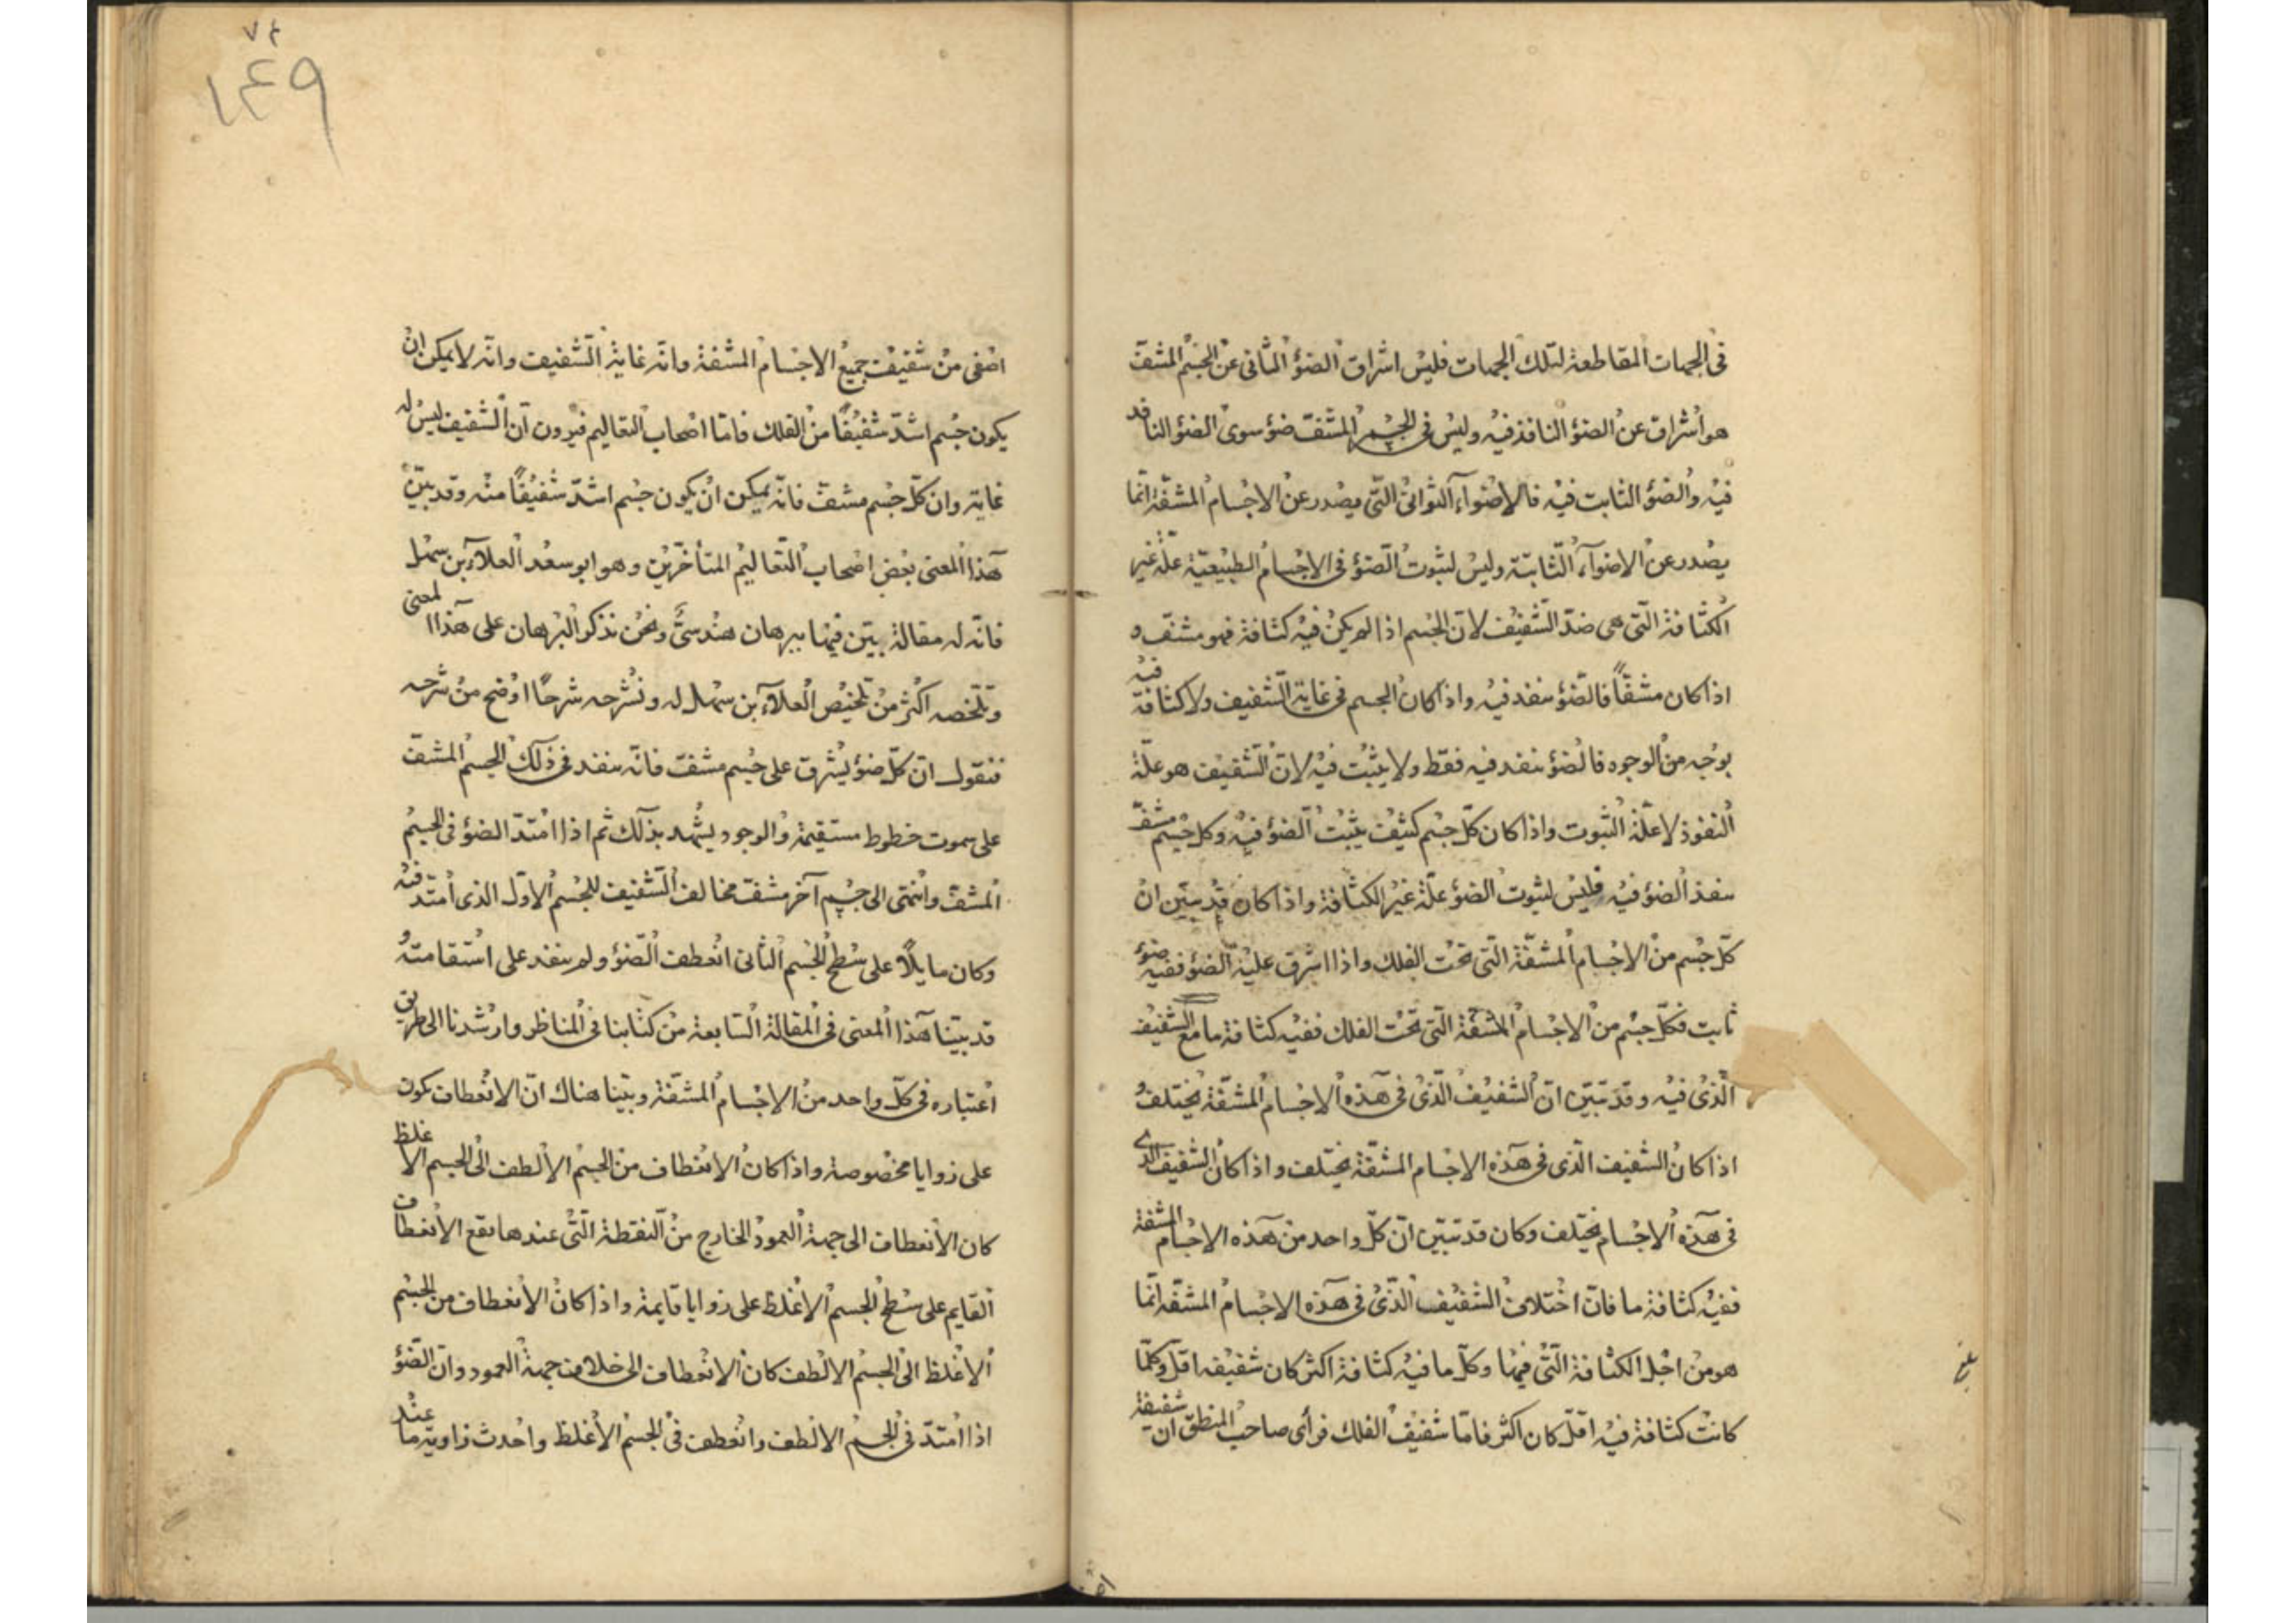 فى الجهات المقاطعة لتلك الجهات فليس اشراق الضؤ الثانى عن الجسم المشف
هو اشراق عن الضؤ النافذ فيه وليس فى الجسم المشف ضؤ سوى الضؤ النافذ
فيه والضؤ الثابت فيه فالاضوآء الثوانى التى يصدر عن الاجسام المشفة انما
يصدر عن الاضوآء الثابتة وليس لثبوت الضؤ فى الاجسام الطبيعية علة غير
الكثافة التى هى ضد الشفيف لان الجسم اذا لم يكن فيه كثافة فهو مشف و
اذا كان مشفاً فالضؤ ينفد فيه واذا كان الجسم فى غاية الشفيف ولا كثافة فيه
بوجه من الوجوه فالضؤ ينفد فيه فقط ولا يثبت فيه لان الشفيف هو علة
النفوذ لا علة الثبوت واذا كان كل جسم كثيف يثبت الضؤ فيه وكل جسم مشف
ينفذ الضؤ فيه فليس لثبوت الضؤ علة غير الكثافة واذا كان قد تبين ان
كل جسم من الاجسام المشفة التى تحت الفلك واذا اشرق عليه الضؤ ففيه ضؤ
ثابت فكل جسم من الاجسام المشفة التى تحت الفلك ففيه كثافة ما مع الشفيف
الذى فيه وقد تبين ان الشفيف الذى فى هذه الاجسام المشفة يختلف و
اذا كان الشفيف الذى فى هذه الاجسام المشفة يختلف واذا كان الشفيف الذى
فى هذه الاجسام يختلف وكان قد تبين ان كل واحد من هذه الاجسام المشفة
ففيه كثافة ما فان اختلاف الشفيف الذى فى هذه الاجسام المشفة انما
هو من اجل الكثافة التى فيها وكل ما فيه كثافة اكثر كان شفيفه اقل وكلما
كانت كثافة فيه اقل كان اكثر فاما شفيف الفلك فرأى صاحب المنطق ان شفيفة
بلغ
١٤٩
اصفى من شفيف جميع الاجسام المشفة وانه غاية الشفيف وانه لا يمكن ان
يكون جسم اشد شفيفًا من الفلك فاما اصحاب التعاليم فيرون ان الشفيف ليس له
غاية وان كل جسم مشف فانه يمكن ان يكون جسم اشد شفيفًا منه وقد بين
هذا المعنى بعض اصحاب التعاليم المتأخرين وهو ابو سعد العلآء بن سهل
فانه له مقالة بين فيها ببرهان هندسى ونحن نذكر البرهان على هذا المعنى
ونلخصه اكثر من تلخيص العلآء بن سهل له ونشرحه شرحًا اوضح من شرحه
فنقول ان كل ضؤ يشرق على جسم مشف فانه ينفد فى ذلك الجسم المشف
على سموت خطوط مستقيمة والوجود يشهد بذلك ثم اذا امتد الضؤ فى الجسم
المشف وانتهى الى جسم آخر مشف مخالف الشفيف للجسم الاول الذى امتد فيه
وكان مايلًا على سطح الجسم الثانى انعطف الضؤ ولم ينفد على استقامته و
قد بينا هذا المعنى فى المقالة السابعة من كتابنا فى المناظر وارشدنا الى طريق
اعتباره فى كل واحد من الاجسام المشفة وبينا هناك ان الانعطاف يكون
على زوايا مخصوصة واذا كان الانعطاف من الجسم الالطف الى الجسم الاغلظ
كان الانعطاف الى جهة العمود الخارج من النقطة التى عندها يقع الانعطاف
القايم على سطح الجسم الاغلظ على زوايا قايمة واذا كان الانعطاف من الجسم
الاغلظ الى الجسم الالطف كان الانعطاف الى خلاف جهة العمود وان الضؤ
اذا امتد فى الجسم الالطف وانعطف فى الجسم الاغلظ واحدث زاوية ما عند